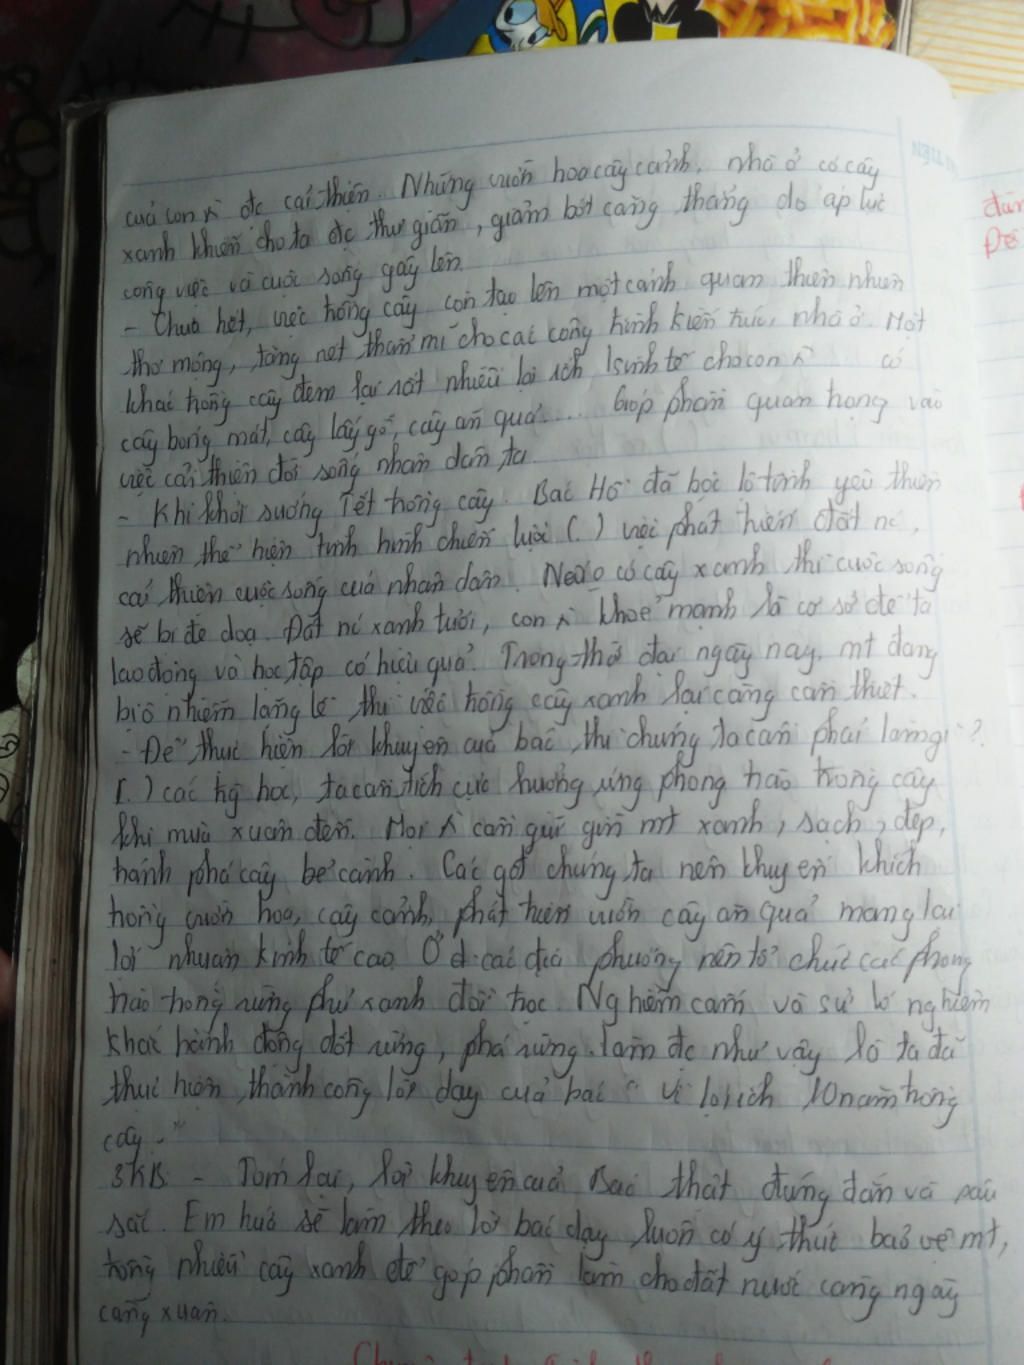 của con ng đc cải thiện. Những vườn hoa cây cảnh, nhà ở có cây
xanh khiến cho ta đc thư giãn, giảm bớt căng thẳng do áp lực
công việc và cuộc sống gây lên.
- Chưa hết, việc trồng cây còn tạo lên một cảnh quan thiên nhiên
thơ mộng, tăng nét thẩm mĩ cho các công trình kiến trúc, nhà ở. Mặt
khác trồng cây đem lại rất nhiều lợi ích kinh tế cho con ng có
cây bóng mát, cây lấy gỗ, cây ăn quả.... Góp phần quan trọng vào
việc cải thiện đời sống nhân dân ta.
- Khi khởi sướng Tết trồng cây. Bác Hồ đã bộc lộ tình yêu thiên
nhiên thể hiện tính hình chiến lược (.) việc phát triển đất nc,
cải thiện cuộc sống của nhân dân. Nếu o có cây xanh thì cuộc sống
sẽ bị đe doạ. Đất nc xanh tươi, con ng khoẻ mạnh là cơ sở để ta
lao động và học tập có hiệu quả. Trong thời đại ngày nay, mt đang
bị ô nhiễm lặng lẽ thì việc trồng cây xanh lại càng cần thiết.
- Để thực hiện lời khuyên của bác, thì chúng ta cần phải làm gì?
(.) các kỳ học, ta cần tích cực hưởng ứng phong trào trồng cây
khi mùa xuân đến. Mọi ng cần giữ gìn mt xanh, sạch, đẹp,
tránh phá cây bẻ cành. Các gđ chúng ta nên khuyến khích
trồng vườn hoa, cây cảnh, phát triển vườn cây ăn quả mang lại
lợi nhuận kinh tế cao. Ở các địa phương nên tổ chức các phong
trào trồng rừng phủ xanh đồi trọc. Nghiêm cấm và sử lí nghiêm
khắc hành động đốt rừng, phá rừng. làm đc như vậy là ta đã
thực hiện thành công lời dạy của bác " Vì lợi ích 10 năm trồng
cây."
3KB: - Tóm lại, lời khuyên của Bác thật đúng đắn và sâu
sắc. Em hứa sẽ làm theo lời bác dạy luôn có ý thức bảo vệ mt,
trồng nhiều cây xanh để góp phần làm cho đất nước càng ngày
càng xuân.